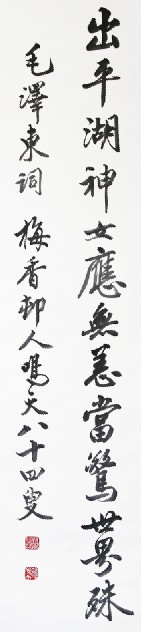 出平湖神女應無恙當驚世界殊
毛澤東詞 梅香邨人鳴天八十四叟